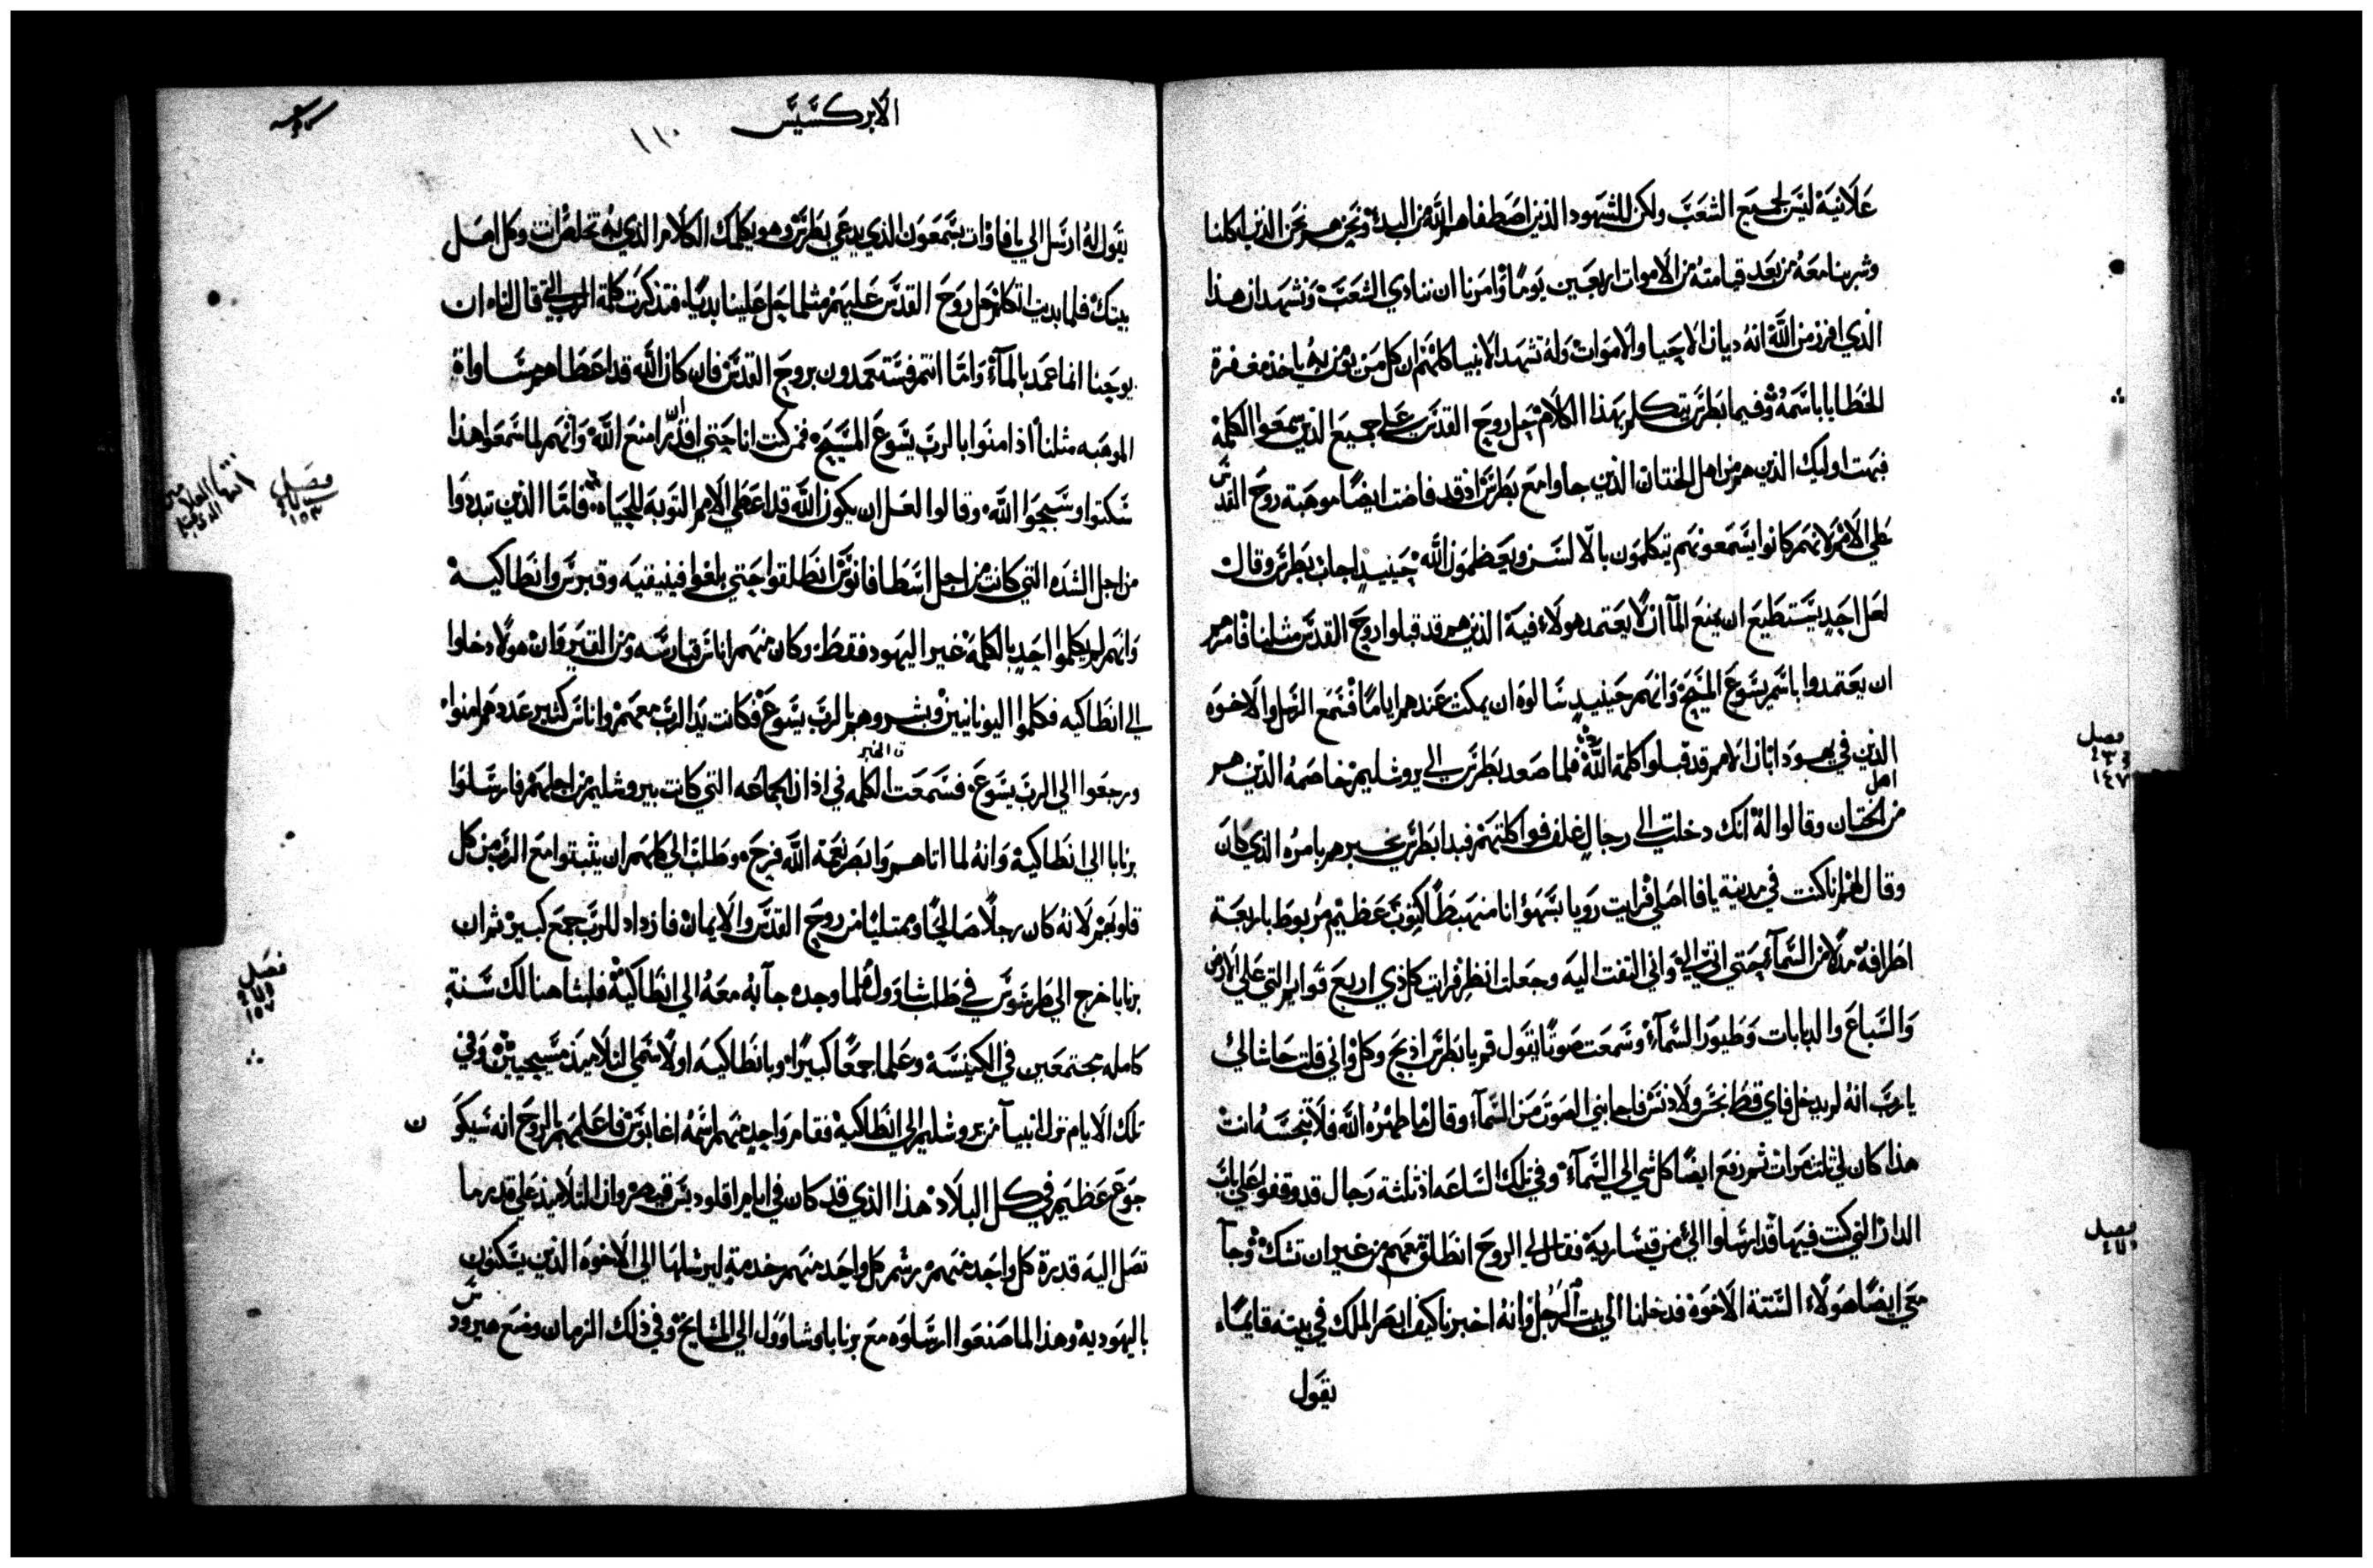 علانية ليس لجميع الشعب ولكن للشهود الذين اصطفاهم الله من البدء ونحن هم نحن الذين اكلنا
وشربنا معه من بعد قيامته من الاموات اربعين يوما وامرنا ان ننادي الشعب ونشهد ان هذا
الذي افرز من الله انه ديان الاحيا والاموات وله تشهد الانبيا كلهم ان كل من يومن به ياخذ مغفرة
الخطايا باسمه وفيما بطرس يتكلم بهذا الكلام حل روح القدس على جميع الذين سمعوا الكلمة
فبهت اوليك الذين هم من اهل الختان الذين جاوا مع بطرس اذ قد فاضت ايضا موهبة روح القدس
على الامم لانهم كانوا يسمعونهم يتكلمون بالالسن ويعظمون الله حينيذ اجاب بطرس وقال
لعل احد يستطيع ان يمنع الماء ان لا يعتمد هولاء فيه الذين هم قد قبلوا روح القدس مثلنا فامرهم
ان يعتمدوا باسم يسوع المسيح وانهم حينيذ سالوه ان يمكث عندهم اياما فسمع الرسل والاخوه
الذين في يهودا بان الامم قد قبلوا كلمة الله فلما صعد بطرس الى يروشليم خاصمه الذين هم
من اهل الختان وقالوا له انك دخلت الى رجال غلف فواكلتهم فبدا بطرس يخبرهم بامره الذي كان
وقال لهم انا كنت في مدينة يافا اصلي فرايت رويا بسهو انا منهبطا كثوب عظيم مربوط باربعة
اطرافه مدلا من السماء حتى اتى اليّ واني التفت اليه وجعلت انظر فرايت كل ذي اربع قوايم التي على الارض
والسباع والدبابات وطيور السماء وسمعت صوتا يقول قم يا بطرس اذبح وكل واني قلت حاشا لي
يا رب انه لم يدخل فاي قط نجس ولا دنس فاجابني الصوت من السماء وقال ما طهره الله فلا تنجسه انت
هذا كان لي ثلث مرات ثم رفع ايضا كل شي الى السماء وفي تلك الساعه اذ ثلثة رجال قد وقفوا على باب
الدار التي كنت فيها قد ارسلوا اليّ من قيسارية فقال لي الروح انطلق معهم من غير ان تشك وجا
معي ايضا هولاء الستة الاخوة فدخلنا الى بيت الرجل وانه اخبرنا كيف ابصر الملك في بيته قايما
يقول
فصل
١٤٧
فصل
الابركسيس
١١٠
يقول له ارسل الى يافا وات بسمعون الذي يدعى بطرس وهو يكلمك الكلام الذي به تخلص انت وكل اهل
بيتك فلما بديت اتكلم حل روح القدس عليهم مثلما حل علينا بديا فتذكرت كلمة الرب التي قال لنا ان
يوحنا انما عمد بالماء واما انتم فستعمدون بروح القدس فان كان الله قد اعطاهم مساواة
الموهبه مثلنا اذ امنوا بالرب يسوع المسيح فمن كنت انا حتى اقدر ان امنع الله وانهم لما سمعوا هذا
سكتوا وسبحوا الله وقالوا لعل ان يكون الله قد اعطى الامم التوبة للحياه فاما الذين تبددوا
من اجل الشده التي كانت من اجل اسطافانوس انطلقوا حتى بلغوا فينيقيه وقبرس وانطاكية
وانهم لم يكلموا احد بالكلمة غير اليهود فقط وكان منهم اناس قبارسه ومن القيروان هولا دخلوا
الى انطاكيه فكلموا اليونانيين وبشروهم بالرب يسوع فكانت يد الرب معهم واناس كثير عددهم امنوا
ورجعوا الى الرب يسوع فسمعت الكلمه في اذان الجماعه التي كانت بيروشليم من اجلهم فارسلوا
ن الخبر
برنابا الى انطاكية وانه لما اتاهم وابصر نعمة الله فرح وطلب الى كلهم ان يثبتوا مع الرب من كل
قلوبهم لانه كان رجلا صالحا وممتليا من روح القدس والايمان فازداد للرب جمع كبير ثم ان
برنابا خرج الى طرسوس في طلب شاول فلما وجده جآ به معه الى انطاكية فلبثا هنالك سنة
كامله مجتمعين في الكنيسة وعلما جمعا كبيرا وبانطاكيه اولا سمي التلاميذ مسيحيين وفي
تلك الايام نزل انبيآ من يروشليم الى انطاكية فقام واحد منهم اسمه اغابوس فاعلمهم بالروح انه سيكون
جوع عظيم في كل البلاد هذا الذي قد كان في ايام اقلوديس قيصر وان التلاميذ على قدر ما
تصل اليه قدرة كل واحد منهم رسم كل واحد منهم خدمة ليرسلها الى الاخوه الذين يسكنون
باليهوديه وهذا لما صنعوا ارسلوه مع برنابا وشاوول الى المشايخ وفي ذلك الزمان وضع هيرودس
فصل
١٥٣
فصل